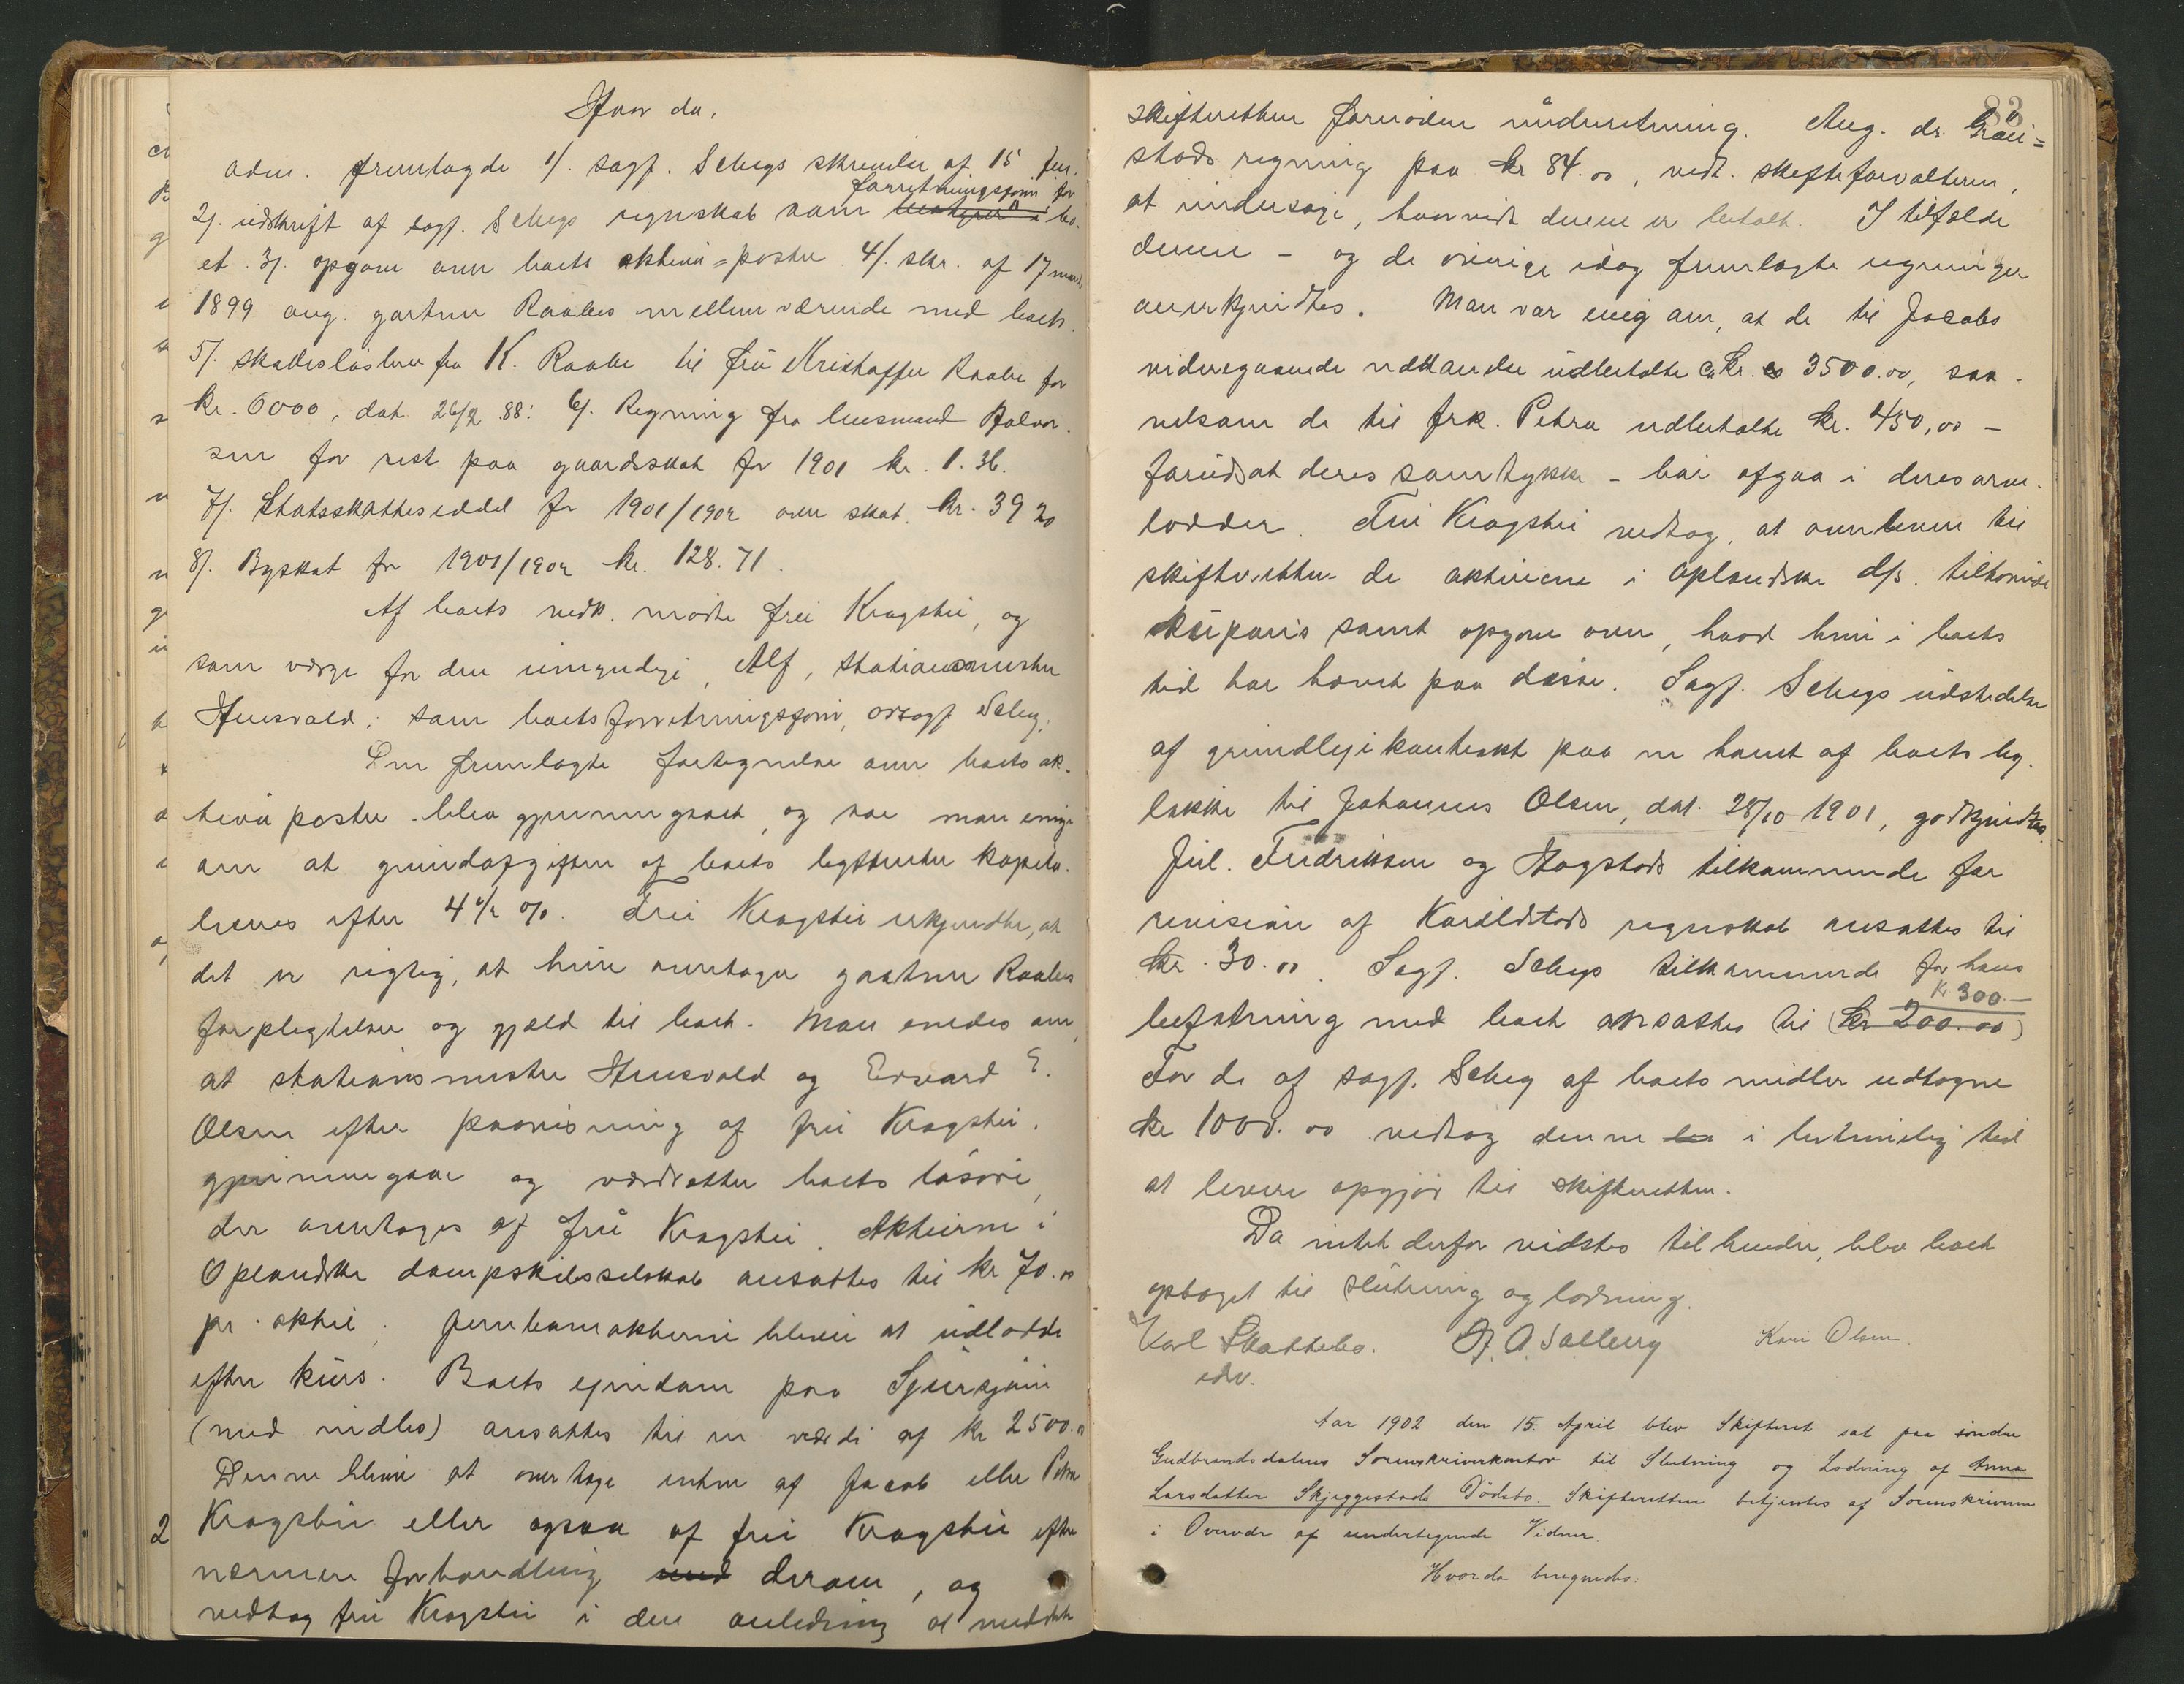 Hvor da.
adm. fremlagde 1/. sagf. Schys skrivelse af 15 jan.
2/. udskrift af sagf. Schys regnskab som forretningsfører for bo-
et. 3/. opgave over boets aktiva-poster 4/. skr. af 17 mars
1899 ang. gartner Raabes mellemværende med boet.
5/. skadesløsbrev fra K. Raabe til fru Kristoffer Raabe for
kr. 6000, dat. 26/2 88: 6/. Regning fra lensmand Halvor-
sen for rest paa gaardsskat for 1901 kr. 1.36.
7/. Statsskatteseddel for 1901/1902 over skat kr. 39 20
8/. Byskat for 1901/1902 kr. 128.71.
Af boets vedk. mødte fru Kragsbii, og
som værge for den umyndige, Alf, stationsmester
Husvold; som boets forretningsfører, o.r.sagf Schy.
Den fremlagte fortegnelse over boets ak-
tiva poster blev gjennemgaaet, og var man enige
om at grundafgiften af boets bygtomter kapita-
liseres efter 4 1/2 %. Fru Kragsbii erkjendte, at
det er rigtig, at hun overtager gartner Raabes
forpligtelser og gjæld til boet. Man enedes om,
at stationsmester Husvold og Edvard E.
Olsen efter paavisning af fru Kragsbii,
gjennemgaar og værdsætter boets løsøre,
der overtages af fru Kragsbii. Aktierne i
Oplandske dampskibsselskab ansattes til kr 70.00
pr. aktie. Jernbaneaktierne bliver at udlodde
efter kurs. Boets eiendom paa
(med nidbo) ansattes til en værdi af kr 2500.00
Denne bliver at overtage enten af Jacob eller Petra
Kragsbii eller ogsaa af fru Kragsbii efter
nærmere forhandling med derom, og
vedtog fru Kragsbii i den anledning at meddele
83
skifteretten fornøden underretning. Ang. dr. Grau-
stads regning paa kr 84.00, vedt. skifteforvalteren,
at undersøge, hvorvidt denne er betalt. I tilfælde
denne - og de øvrige idag fremlagte regninger
anerkjendtes. Man var enig om, at de til Jacobs
videregaaende uddannelse udbetalte Kr. ca 3500.00, saa-
velsom de til frk. Petra udbetalte Kr. 450,00 -
forudsat deres samtykke - bør afgaa i deres arve-
lodder. Fru Kragsbii vedtog, at oversende til
skifteretten de aktierne i Oplandske d/s. tilhørende
kupons samt opgave over, hvad hun i boets
tid har hævet paa disse. Sagf. Schys udstedelse
af grundleiekontrakt paa en tomt af boets byg-
løkke til Johannes Olsen, dat. 28/10 1901, godkjendtes.
Jul. Fredriksen og Hagstads tilkommende for
revision af Karlstads regnskab ansattes til
kr. 30.00. Sagf. Schys tilkommende for hans
Kr 300.—
befatning med boet ansattes til (kr 200.00)
For de af sagf. Schy af boets midler udtagne
kr 1000.00 vedtog denne i betimelig tid
at levere opgjør til skifteretten.
Da intet derfor vidstes til hinder, blev boet
optaget til slutning og lodning.
Karl Skattebo. A. Solberg Kari Olsen.
edv.
Aar 1902 den 15. April blev Skifteret sat paa søndre
Gudbrandsdalens Sorenskriverkontor til Slutning og Lodning af Anna
Larsdatter Skjeggestads Dødsbo. Skifteretten betjentes af Sorenskriveren
i Overvær af undertegnede Vidner.
Hvorda beregnedes:
2